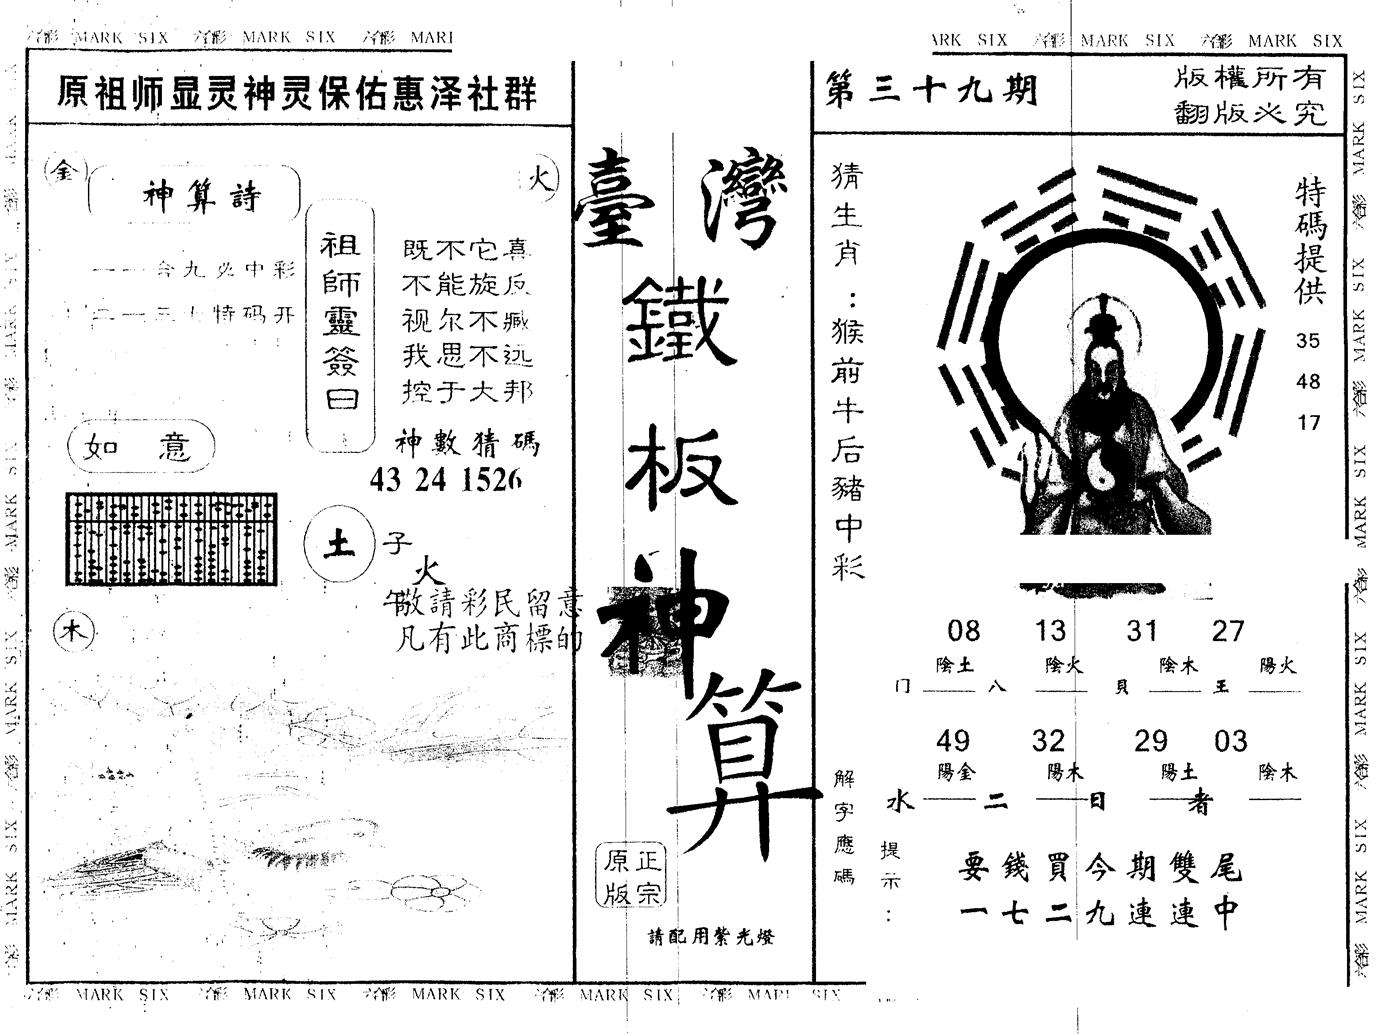 六合彩 MARK SIX 六合彩 MARK SIX 六合彩 MARK
MARK SIX 六合彩 MARK SIX 六合彩 MARK SIX
原祖师显灵神灵保佑惠泽社群
第三十九期
版權所有
翻版必究
金
火
神算詩
一一合九必中彩
二一三七特码开
祖師靈簽曰
既不它真
不能旋反
视尔不臧
我思不远
控于大邦
神數猜碼
43 24 1526
如意
土
子
火
午
木
敬請彩民留意
凡有此商標的
臺灣
鐵
板
神
算
正宗
原版
請配用紫光燈
猜生肖：猴前牛后豬中彩
特碼提供
35
48
17
08 13 31 27
陰土 陰火 陰木 陽火
门 八 貝 王
49 32 29 03
陽金 陽木 陽土 陰木
水 二 日 者
解字應碼
提示：
要錢買今期雙尾
一七二九連連中
六合彩 MARK SIX 六合彩 MARK SIX 六合彩 MARK SIX 六合彩 MARK SIX 六合彩 MARK SIX